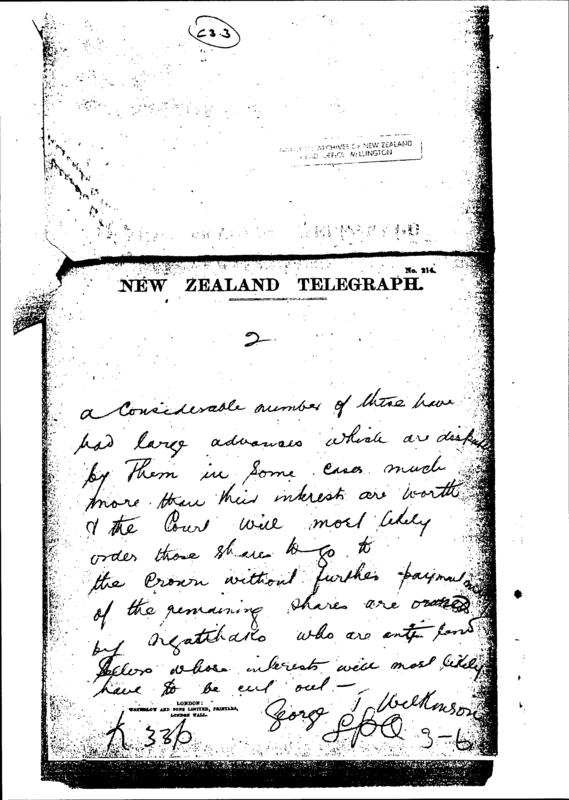 C3.3
ARCHIVES OF NEW ZEALAND
HEAD OFFICE WELLINGTON
No. 214.
NEW ZEALAND TELEGRAPH.
2
a considerable number of these have
had large advances which are
by them in some cases much
more than their interests are worth
& the Court will most likely
order those shares to go to
the Crown without further payment
of the remaining shares are
by Ngatihako who are anti land
sellers whose interests will most likely
have to be cut out —
George T Wilkinson
LPO
3-6
LONDON:
WATERLOW AND SONS LIMITED, PRINTERS,
LONDON WALL.